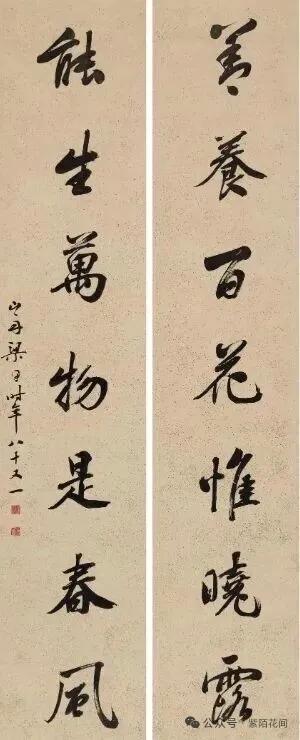 善養百花惟曉露
能生萬物是春風
山舟梁時年八十又一
公众号·紫陌花间